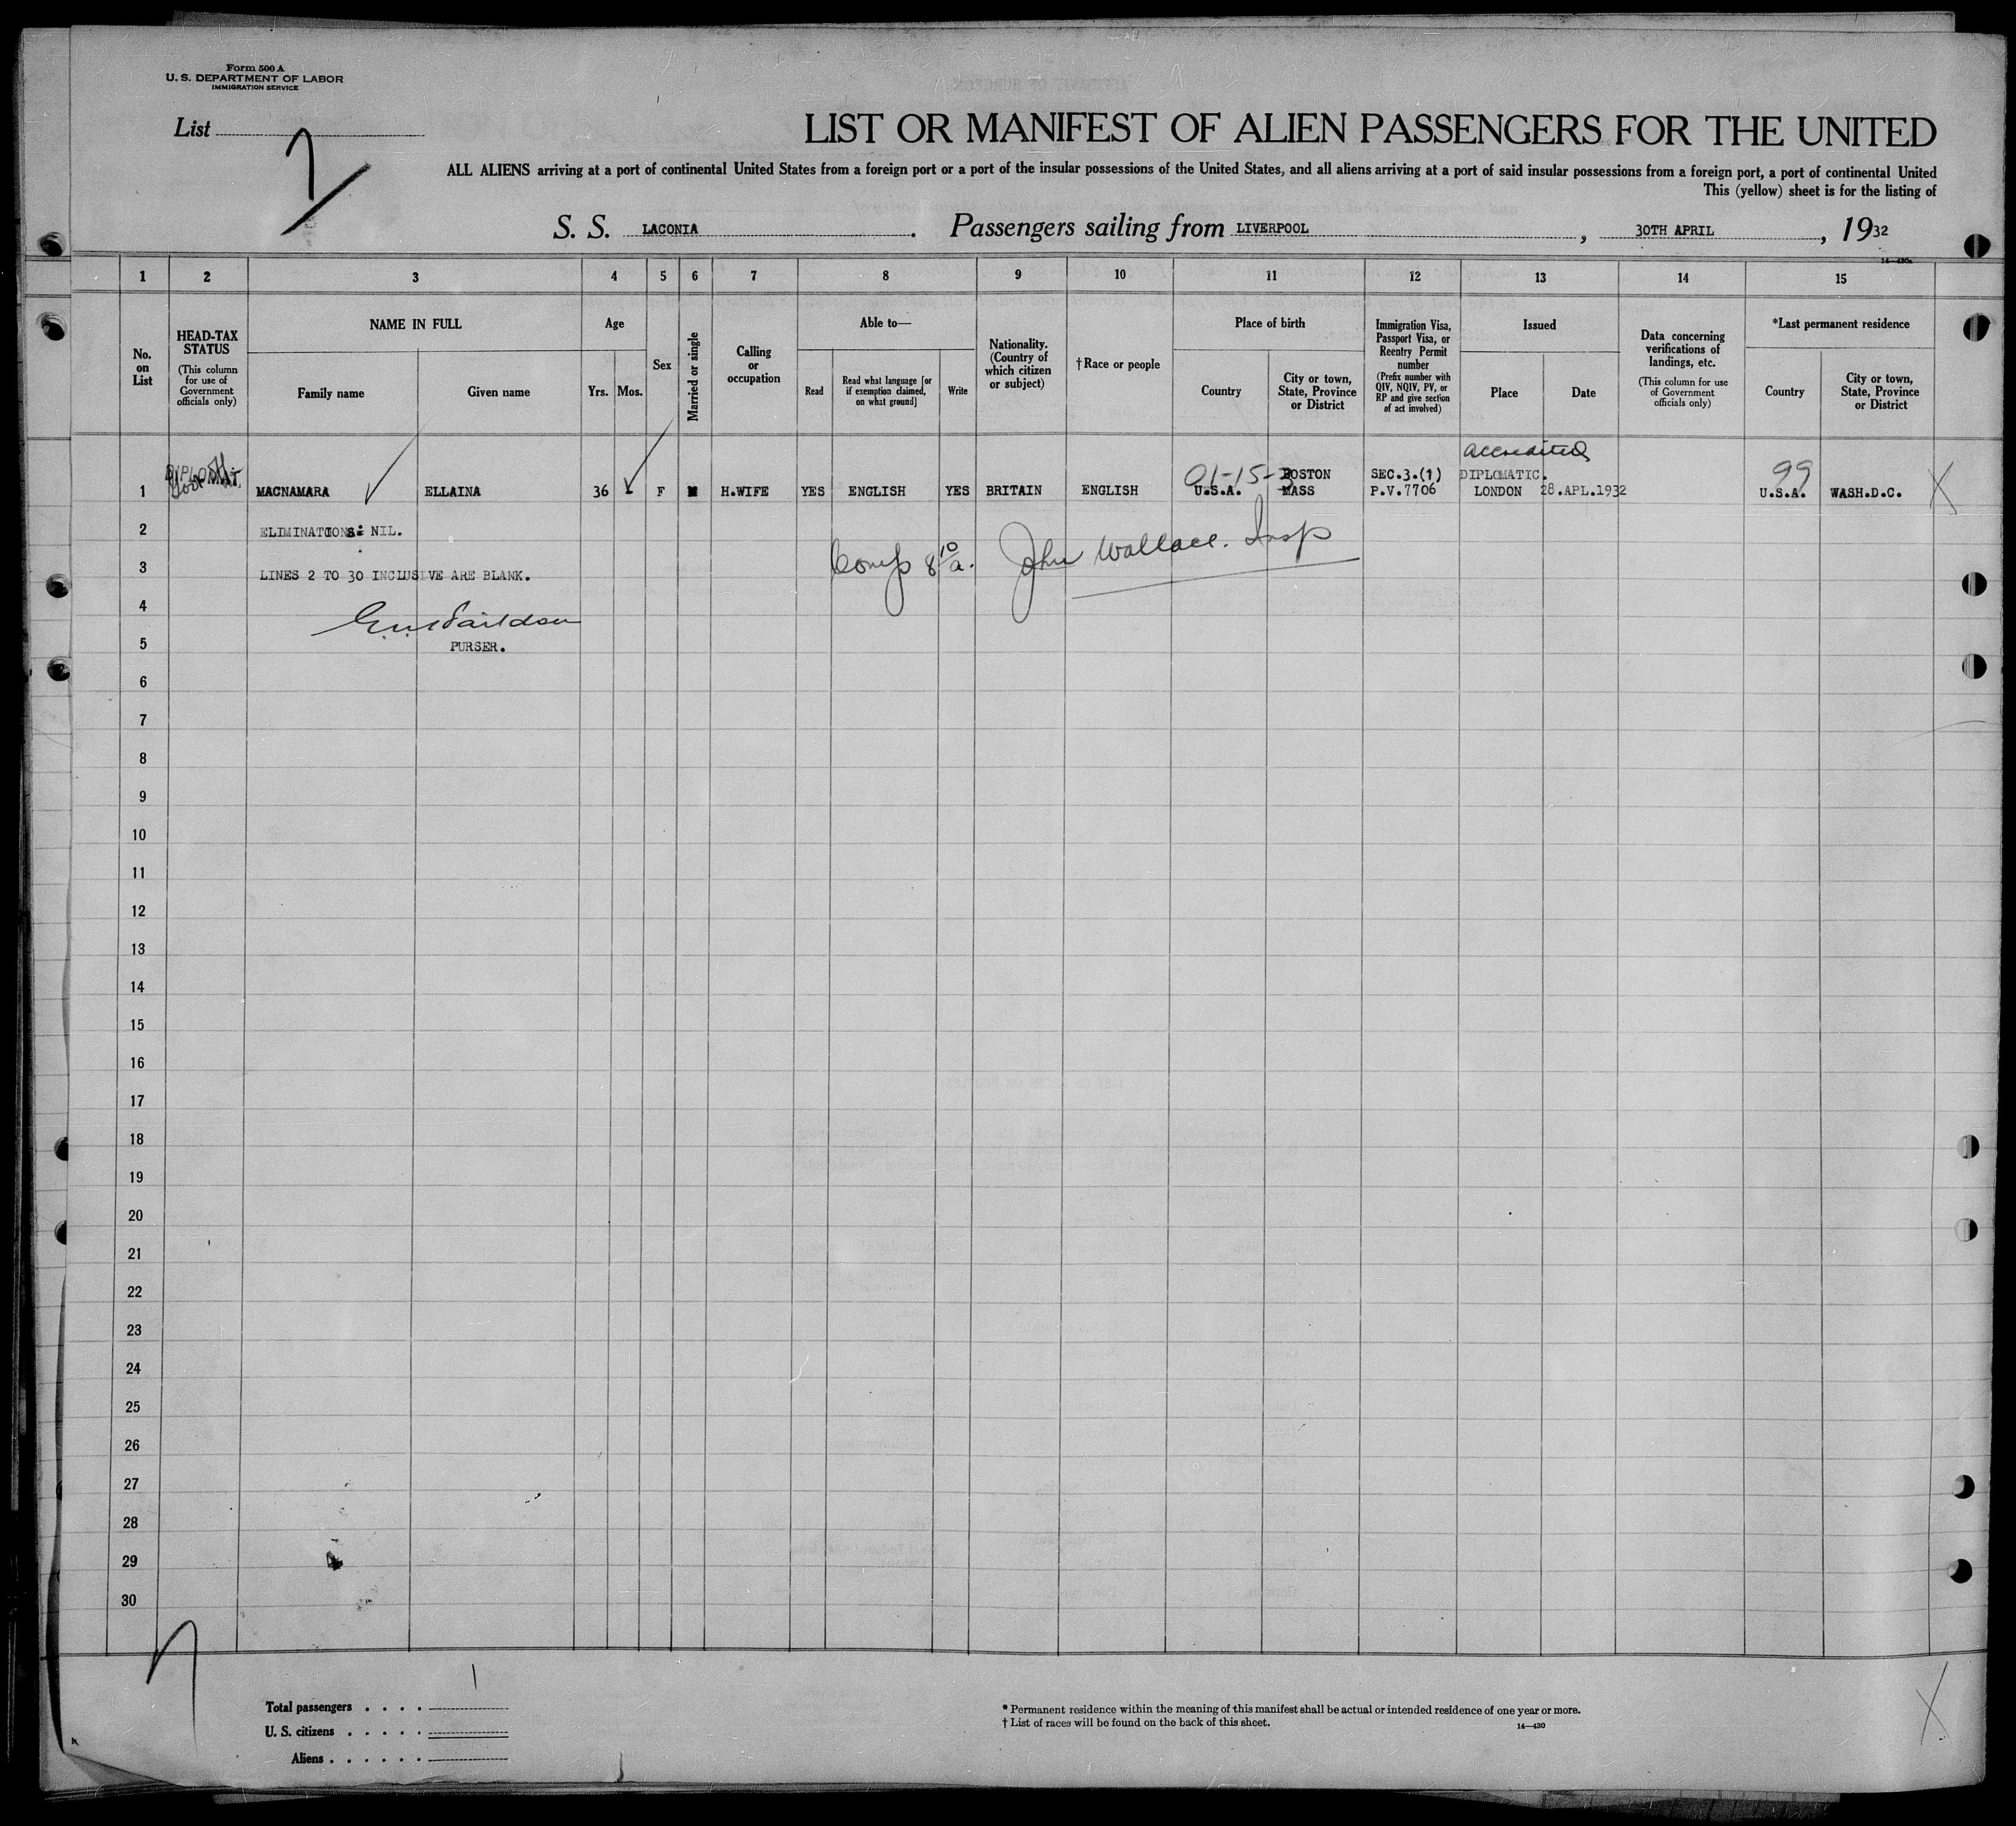 Form 500 A
U. S. DEPARTMENT OF LABOR
IMMIGRATION SERVICE
List
LIST OR MANIFEST OF ALIEN PASSENGERS FOR THE UNITED
ALL ALIENS arriving at a port of continental United States from a foreign port or a port of the insular possessions of the United States, and all aliens arriving at a port of said insular possessions from a foreign port, a port of continental United
This (yellow) sheet is for the listing of
S. S. LACONIA. Passengers sailing from LIVERPOOL, 30TH APRIL, 1932
14—430a
1 2 3 4 5 6 7 8 9 10 11 12 13 14 15
No. on List
HEAD-TAX STATUS
(This column for use of Government officials only)
NAME IN FULL
Family name
Given name
Age
Yrs. Mos.
Sex
Married or single
Calling or occupation
Able to—
Read
Read what language [or if exemption claimed, on what ground]
Write
Nationality. (Country of which citizen or subject)
† Race or people
Place of birth
Country
City or town, State, Province or District
Immigration Visa, Passport Visa, or Reentry Permit number
(Prefix number with QIV, NQIV, PV, or RP and give section of act involved)
Issued
Place
Date
Data concerning verifications of landings, etc.
(This column for use of Government officials only)
*Last permanent residence
Country
City or town, State, Province or District
accredited
DIPLOMAT. 01-15-3 BOSTON SEC.3.(1) DIPLOMATIC. 99
1 MACNAMARA ELLAINA 36 F M H.WIFE YES ENGLISH YES BRITAIN ENGLISH U.S.A. MASS P.V.7706 LONDON 28.APL.1932 U.S.A. WASH.D.C. X
2 ELIMINATIONS: NIL.
Comp 8 10/a. John Wallace. Insp
3 LINES 2 TO 30 INCLUSIVE ARE BLANK.
4
5 PURSER.
6
7
8
9
10
11
12
13
14
15
16
17
18
19
20
21
22
23
24
25
26
27
28
29
30
Total passengers . . . . 1
U. S. citizens . . . . .
Aliens . . . . . .
* Permanent residence within the meaning of this manifest shall be actual or intended residence of one year or more.
† List of races will be found on the back of this sheet.
14—430
X